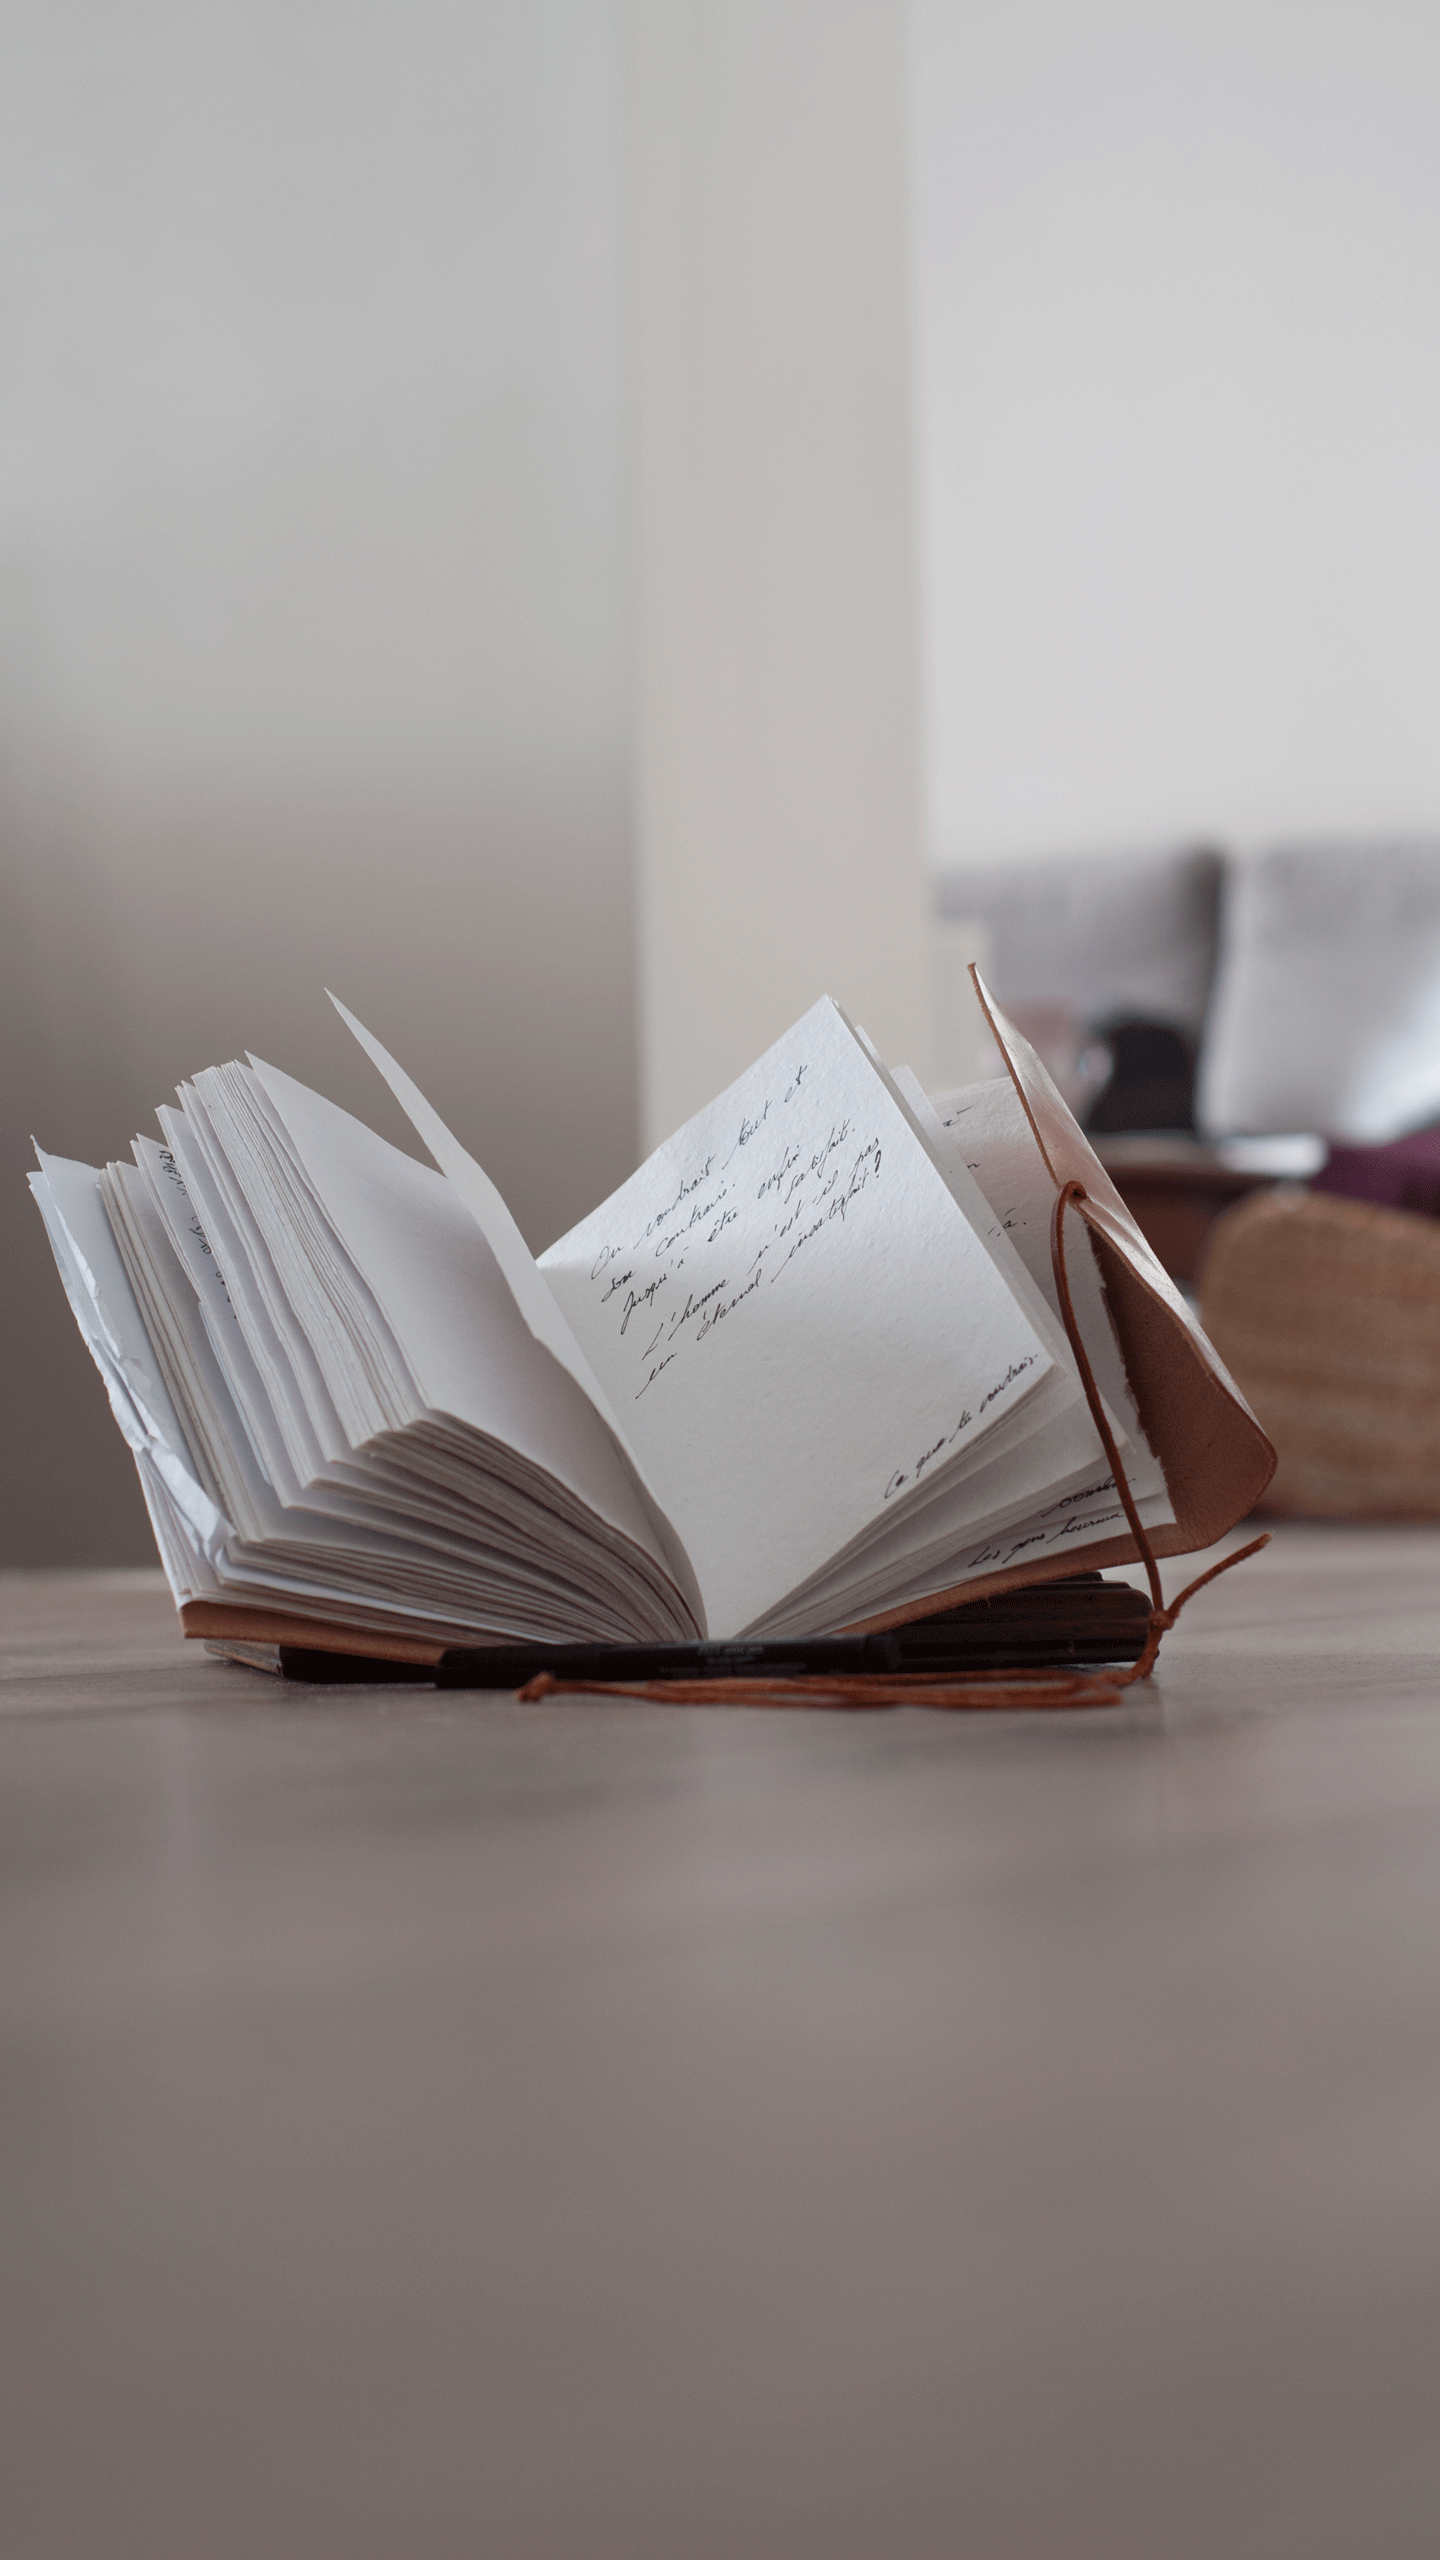 On voudrait tout et
son contraire.
Jusqu'à être enfin satisfait.
L'homme n'est-il pas
un éternel insatisfait ?
Ce que tu voudrais.
Les gens heureux